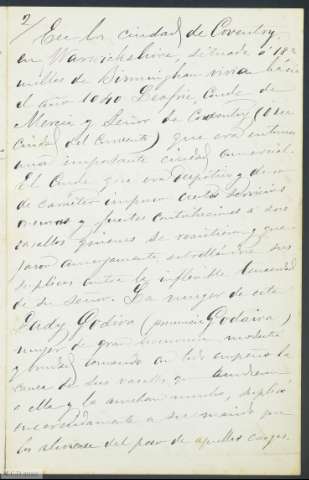 2/
En la ciudad de Coventry,
en Warwickshire, situada á 18
millas de Birmingham vivia hácia
el año 1040 Leofric Conde de
Mercia y Señor de Coventry (ó sea
Ciudad del Convento) que era entonces
una importante ciudad comercial.
El Conde que era despótico y duro
de carácter impuso ciertos servicios
onerosos y fuertes contribuciones á sus
vasallos quienes se resistieron y que-
jaron amargamente estrellándose sus
súplicas contra la inflexible tenacidad
de su Señor. La muger de este
Lady Godiva (pronuncia Godaiva)
muger de gran hermosura, modestia
y bondad tomando con todo empeño la
causa de sus vasallos que acudieron
á ella y la amaban mucho, suplicó
encarecidamente á su marido que
los aliviase del peso de aquellas cargas.